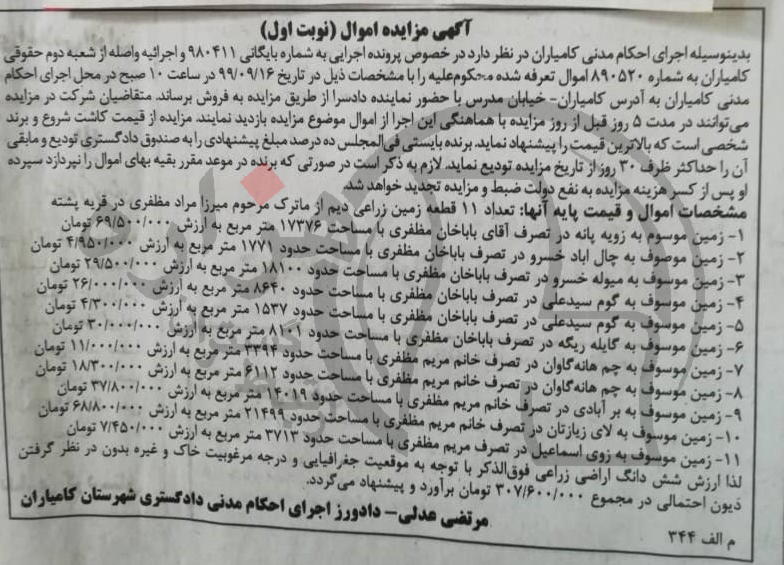 آگهی مزایده اموال (نوبت اول)
بدینوسیله اجرای احکام مدنی کامیاران در نظر دارد در خصوص پرونده اجرایی به شماره بایگانی ۹۸۰۴۱۱ و اجرائیه واصله از شعبه دوم حقوقی
کامیاران به شماره ۸۹۰۵۲۰ اموال تعرفه شده محکوم‌علیه را با مشخصات ذیل در تاریخ ۹۹/۰۹/۱۶ در ساعت ۱۰ صبح در محل اجرای احکام
مدنی کامیاران به آدرس کامیاران- خیابان مدرس با حضور نماینده دادسرا از طریق مزایده به فروش برساند. متقاضیان شرکت در مزایده
می‌توانند در مدت ۵ روز قبل از روز مزایده با هماهنگی این اجرا از اموال موضوع مزایده بازدید نمایند. مزایده از قیمت کاشت شروع و برند
شخصی است که بالاترین قیمت را پیشنهاد نماید. برنده بایستی فی‌المجلس ده درصد مبلغ پیشنهادی را به صندوق دادگستری تودیع و مابقی
آن را حداکثر ظرف ۳۰ روز از تاریخ مزایده تودیع نماید. لازم به ذکر است در صورتی که برنده در موعد مقرر بقیه بهای اموال را نپردازد سپرده
او پس از کسر هزینه مزایده به نفع دولت ضبط و مزایده تجدید خواهد شد.
مشخصات اموال و قیمت پایه آنها: تعداد ۱۱ قطعه زمین زراعی دیم از ماترک مرحوم میرزا مراد مظفری در قریه پشته
۱- زمین موسوم به زویه پانه در تصرف آقای باباخان مظفری با مساحت ۱۷۳۷۶ متر مربع به ارزش ۶۹/۵۰۰/۰۰۰ تومان
۲- زمین موصوف به چال اباد خسرو در تصرف باباخان مظفری با مساحت حدود ۱۷۷۱ متر مربع به ارزش ۴/۹۵۰/۰۰۰ تومان
۳- زمین موسوف به میوله خسرو در تصرف باباخان مظفری با مساحت حدود ۱۸۱۰۰ متر مربع به ارزش ۲۹/۵۰۰/۰۰۰ تومان
۴- زمین موسوف به گوم سیدعلی در تصرف باباخان مظفری با مساحت حدود ۸۶۴۰ متر مربع به ارزش ۲۶/۰۰۰/۰۰۰ تومان
۵- زمین موسوف به گوم سیدعلی در تصرف باباخان مظفری با مساحت حدود ۱۵۳۷ متر مربع به ارزش ۴/۳۰۰/۰۰۰ تومان
۶- زمین موسوف به گایله ریگه در تصرف باباخان مظفری با مساحت حدود ۸۱۰۱ متر مربع به ارزش ۳۰/۰۰۰/۰۰۰ تومان
۷- زمین موسوف به چم هانه‌گاوان در تصرف خانم مریم مظفری با مساحت حدود ۳۳۹۴ متر مربع به ارزش ۱۱/۰۰۰/۰۰۰ تومان
۸- زمین موسوف به چم هانه‌گاوان در تصرف خانم مریم مظفری با مساحت حدود ۶۱۱۲ متر مربع به ارزش ۱۸/۳۰۰/۰۰۰ تومان
۹- زمین موسوف به بر آبادی در تصرف خانم مریم مظفری با مساحت حدود ۱۴۰۱۹ متر مربع به ارزش ۳۷/۸۰۰/۰۰۰ تومان
۱۰- زمین موسوف به لای زیازتان در تصرف خانم مریم مظفری با مساحت حدود ۲۱۴۹۹ متر مربع به ارزش ۶۸/۸۰۰/۰۰۰ تومان
۱۱- زمین موسوف به زوی اسماعیل در تصرف مریم مظفری با مساحت حدود ۳۷۱۳ متر مربع به ارزش ۷/۴۵۰/۰۰۰ تومان
لذا ارزش شش دانگ اراضی زراعی فوق‌الذکر با توجه به موقعیت جغرافیایی و درجه مرغوبیت خاک و غیره بدون در نظر گرفتن
دُیون احتمالی در مجموع ۳۰۷/۶۰۰/۰۰۰ تومان برآورد و پیشنهاد می‌گردد.
مرتضی عدلی- دادورز اجرای احکام مدنی دادگستری شهرستان کامیاران
م الف ۳۴۴